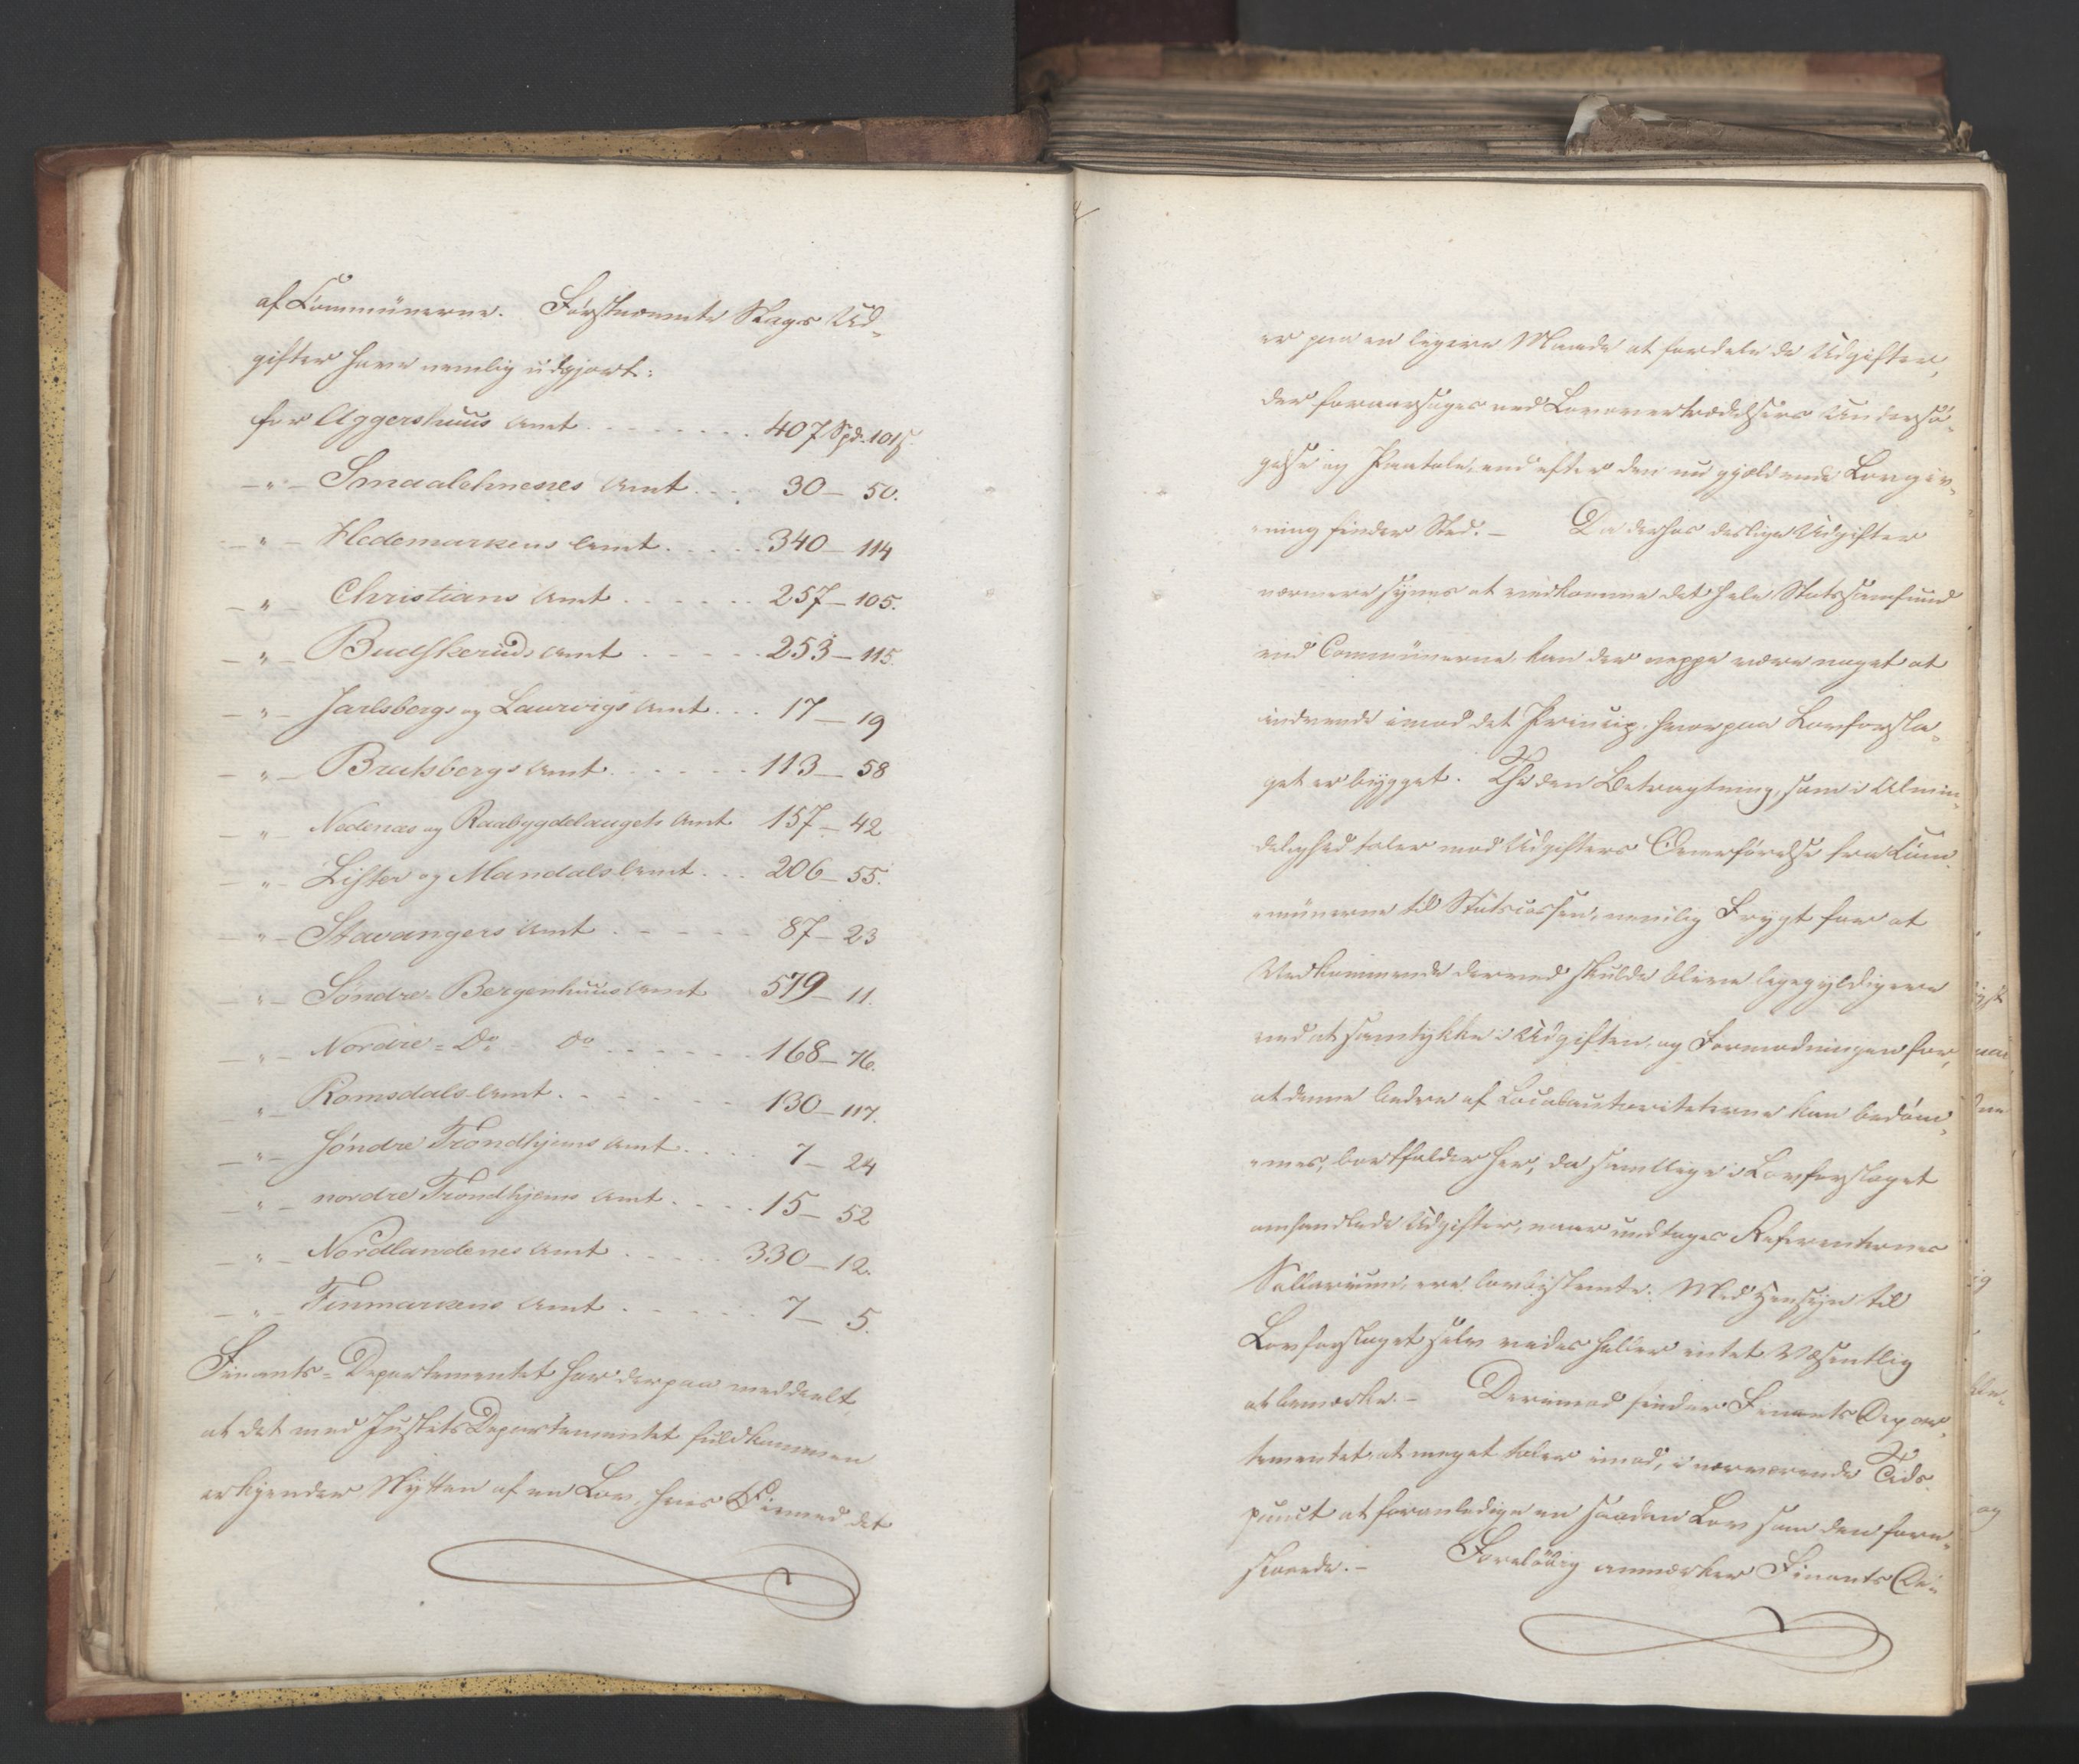 af Communerne. Førstnævnte Slags Ud-
gifter have nemlig udgjort:
for Aggershuus Amt . . . . . . . 407 Spd. 101 ß.
— " — Smaalehnenes Amt . . . 30 — 50.
— " — Hedemarkens Amt . . . . 340 — 114
— " — Christians Amt . . . . . 257 — 105.
— " — Budskeruds Amt . . . . . 253 — 115.
— " — Jarlsbergs og Laurvigs Amt . . . 17 — 19
— " — Bratsbergs Amt . . . . . . 113 — 58
— " — Nedenæs og Raabygdelaugets Amt 157 — 42
— " — Lister og Mandals Amt . . . 206 — 55.
— " — Stavangers Amt . . . . . 87 — 23
— " — Søndre-Bergenhuus Amt 579 — 11.
— " — Nordre = Do Do . . . . . . 168 — 76.
" — Romsdals Amt . . . . . . 130 — 117.
— " — Søndre Trondhjems Amt . . . . 7 — 24
— " — nordre Trondhjems Amt . . . . 15 — 52
— " — Nordlandenes Amt . . . . . 330 — 12.
— " — Finmarkens Amt . . . . . 7 — 5.
Finants-Departementet har derpaa meddeelt,
at det med JustitsDepartementet fuldkommen
erkjender Nytten af en Lov, hvis Øiemed det
er paa en ligere Maade at fordele de Udgifter,
der foraarsages ved Lovovertrædelsers Undersø-
gelse og Paatale, end efter den nu gjældende Lovgiv-
ning finder Sted. — Da derhos deslige Udgifter
nærmere synes at vedkomme det hele Statssamfund
end Communerne, kan der neppe være noget at
indvende imod det Princip, hvorpaa Lovforsla-
get er bygget. Thi den Betragtning, som i Almin-
delighed taler mod Udgifters Overførelse fra Com-
munerne til Statscassen, nemlig Frygt for at
Vedkommende derved skulde blive ligegyldigere
ved at samtykke i Udgiften, og Formodningen for,
at denne bedre af Localautoriteterne kan bedøm-
mes, bortfalder her, da samtlige i Lovforslaget
omhandlede Udgifter, naar undtages Referenternes
Sallarium, ere lovbestemte. Med Hensyn til
Lovforslaget selv vides heller intet Væsentlig
at bemærke. — Derimod finder Finants Depar-
tementet, at meget taler imod, i nærværende Tids-
punct at foranledige en saadan Lov som den fore-
slaaede. — Foreløbig anmærker Finants De-